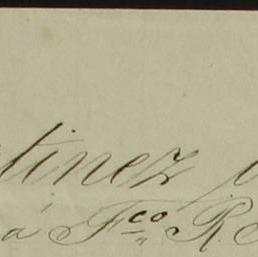 tinez
á Fco R.